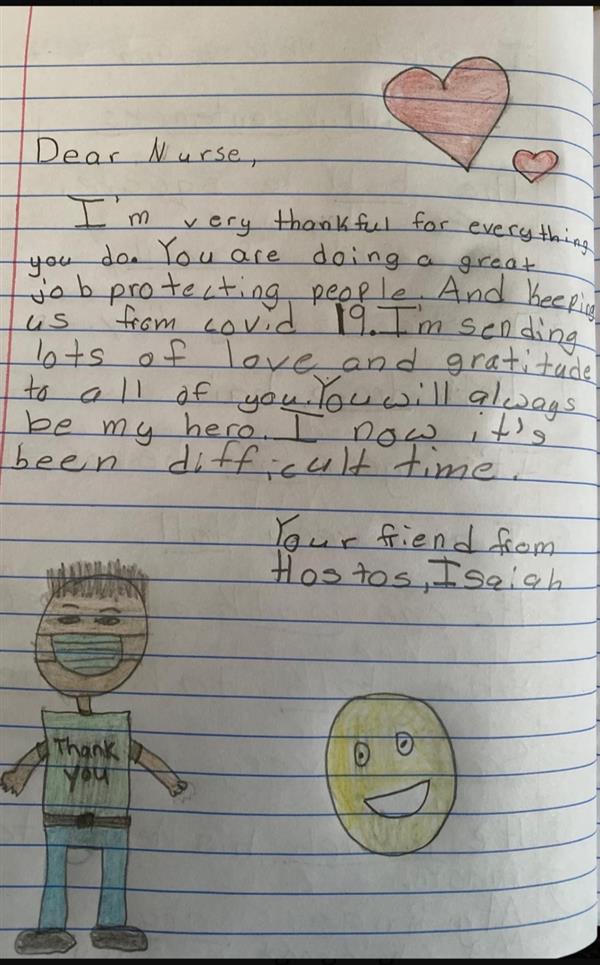 Dear Nurse,
I'm very thankful for everything
you do. You are doing a great
job protecting people. And keeping
us from covid 19. I'm sending
lots of love and gratitude
to all of you. You will always
be my hero. I now it's
been difficult time.
Your friend from
Hostos, Isaiah
Thank
you